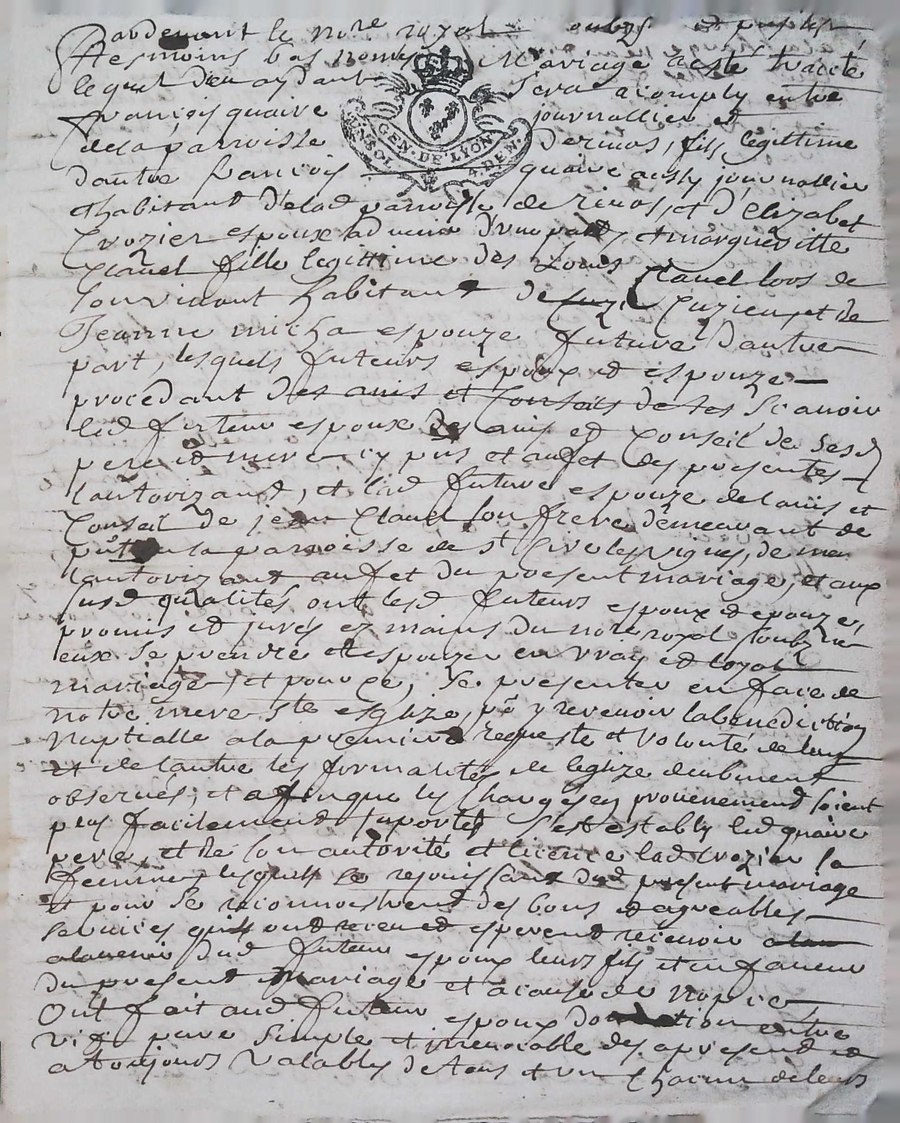 Pardevant le nore royal soubzs et presens
tesmoins bas nommes Mariage a esté traicté
lequel Dieu aydant sera acomply entre
françois quaire journallier et
de la parroisse de rivas, fils legittime
dautre françois quaire aussy journallier
et habitant de lad parroisse de rivas, et d'Elizabet
Crozier espoux advenir d'une part, et margueritte
Clauel fille legittime des Louis Clauel loos de
son vivant habitant de Cuzieu, et de
Jeanne micha espouze future d'autre
part, lesquels futeurs espoux et espouze
procedant des auis et Conseils de ses Scavoir
led futeur espoux des auis et Conseil de sesd
pere et mere cy pns et aufet des presentes
lautorizant, et lad future espouze de lauis et
Conseil de jean Clauel son frere demeurant de
pnt en la parroisse de st Cire les vignes, de mesme
lautorizant aufet du present mariage, et aux
susd qualités ont lesd futeurs espoux et epouze,
promis et jurés ez mains du nore royal soubzne
eux se prendre et espouzer en vray et loyal
mariage, et pour ce, se presenter en face de
notre mere ste esglize, pr y recevoir la benediction
nuptialle a la premiere requeste et volonté de lun
et de lautre les formalités de leglize deubment
observés, et affin que les Charges en provenement soient
plus facilement suportés s'est estably led quaire
pere, et de son autorité et licence lad Crozier sa
femme, lesquels se rejouissant dud present mariage
et pour se reconnoistrend des bons et agreables
services quils ont receu et esperent recevoir
alavenir dud futeur espoux leurs fils et en faueur
du present Mariage et a cause de nopce
ont fait aud futeur espoux donation entre
vifs pure simple et irrevocable des apresent et
a toujours valables de tous et un chacun de leurs
GEN. DE LYON
SOL
4. DEN.